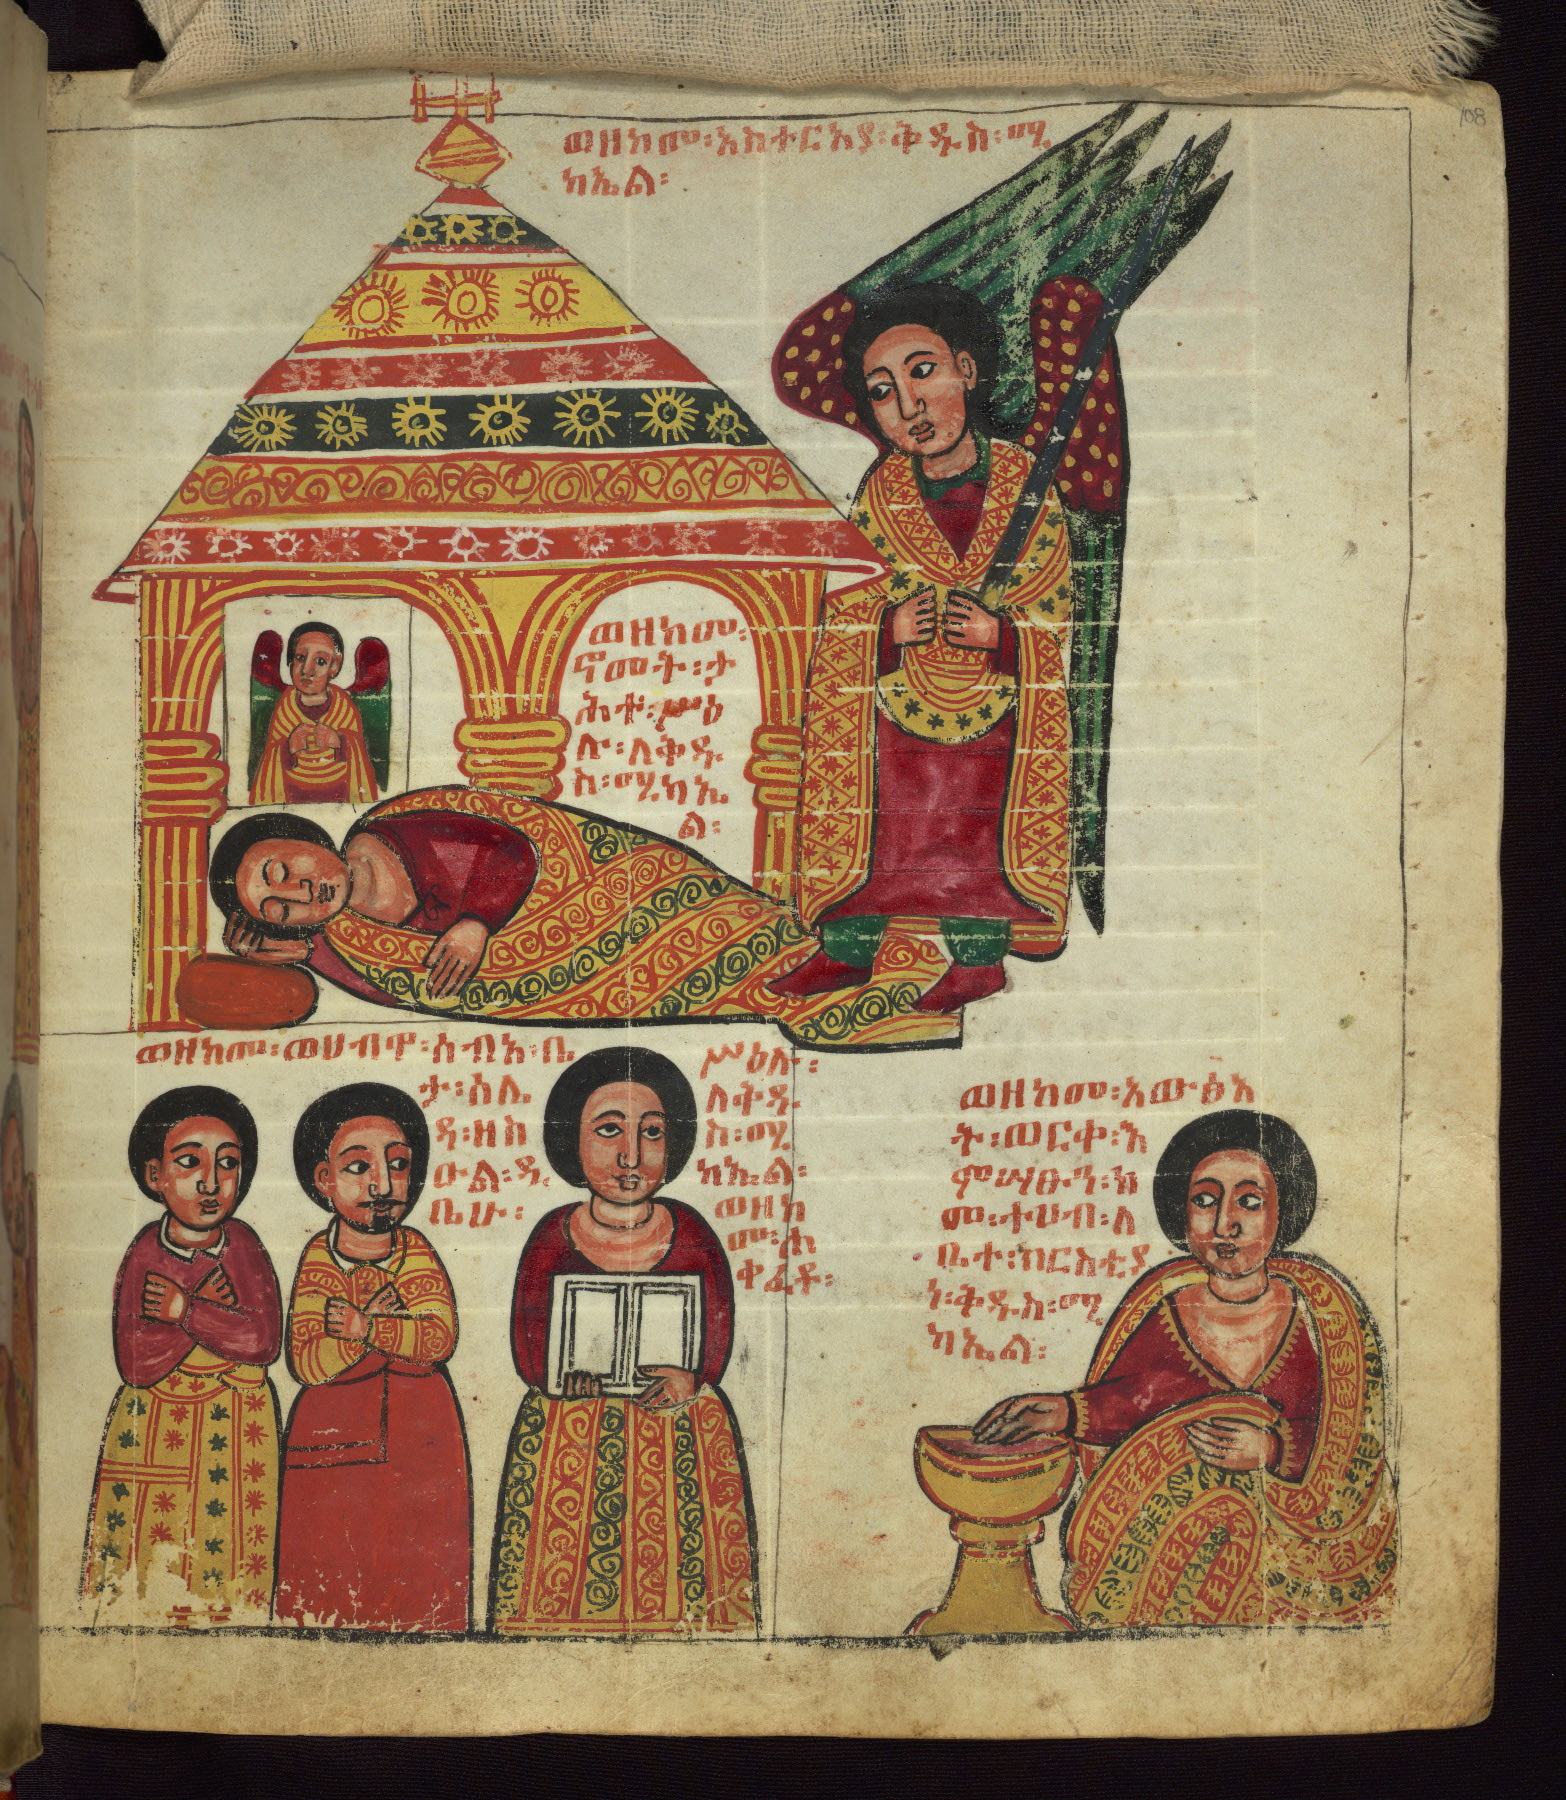 108
ወዘከመ፡አስተርአያ፡ቅዱስ፡ሚ
ካኤል፡
ወዘከመ፡
ኖመት፡ታ
ሕተ፡ሥዕ
ሉ፡ለቅዱ
ስ፡ሚካኤ
ል፡
ወዘከመ፡ወሀብዋ፡ሰብአ፡ቤ
ታ፡ሰሌ
ዳ፡ዘስ
ዑል፡ዲ
ቤሁ፡
ሥዕሉ፡
ለቅዱ
ስ፡ሚ
ካኤል፡
ወዘከ
መ፡ሐ
ቀፈቶ፡
ወዘከመ፡አውፅአ
ት፡ወርቀ፡እ
ምሣፁን፡ከ
መ፡ተሀብ፡ለ
ቤተ፡ክርስቲያ
ነ፡ቅዱስ፡ሚ
ካኤል፡